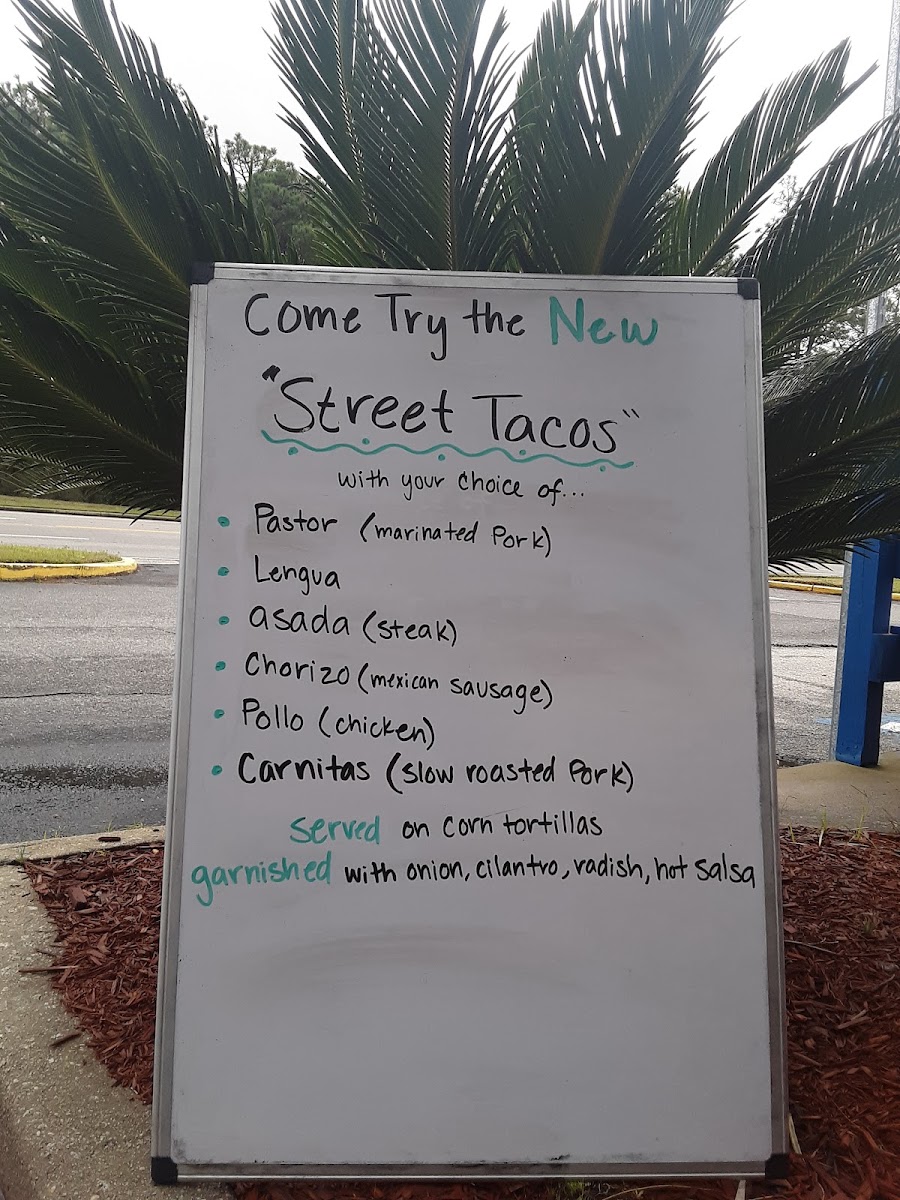 Come Try the New
"Street Tacos"
with your choice of...
• Pastor (marinated Pork)
• Lengua
• asada (steak)
• Chorizo (mexican sausage)
• Pollo (chicken)
• Carnitas (slow roasted Pork)
served on corn tortillas
garnished with onion, cilantro, radish, hot salsa